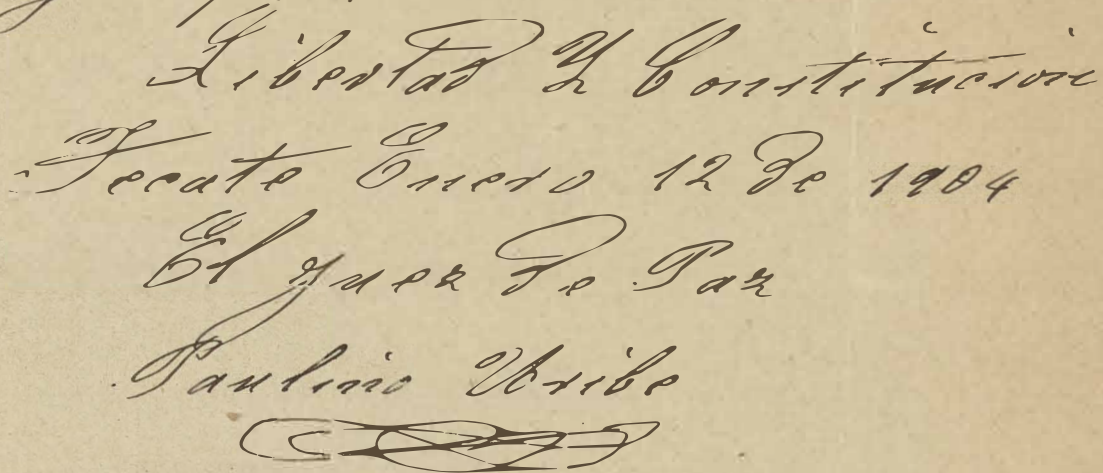 Libertad Y Constitucion
Tecate Enero 12 de 1904
El Juez de Paz
Paulino Uribe